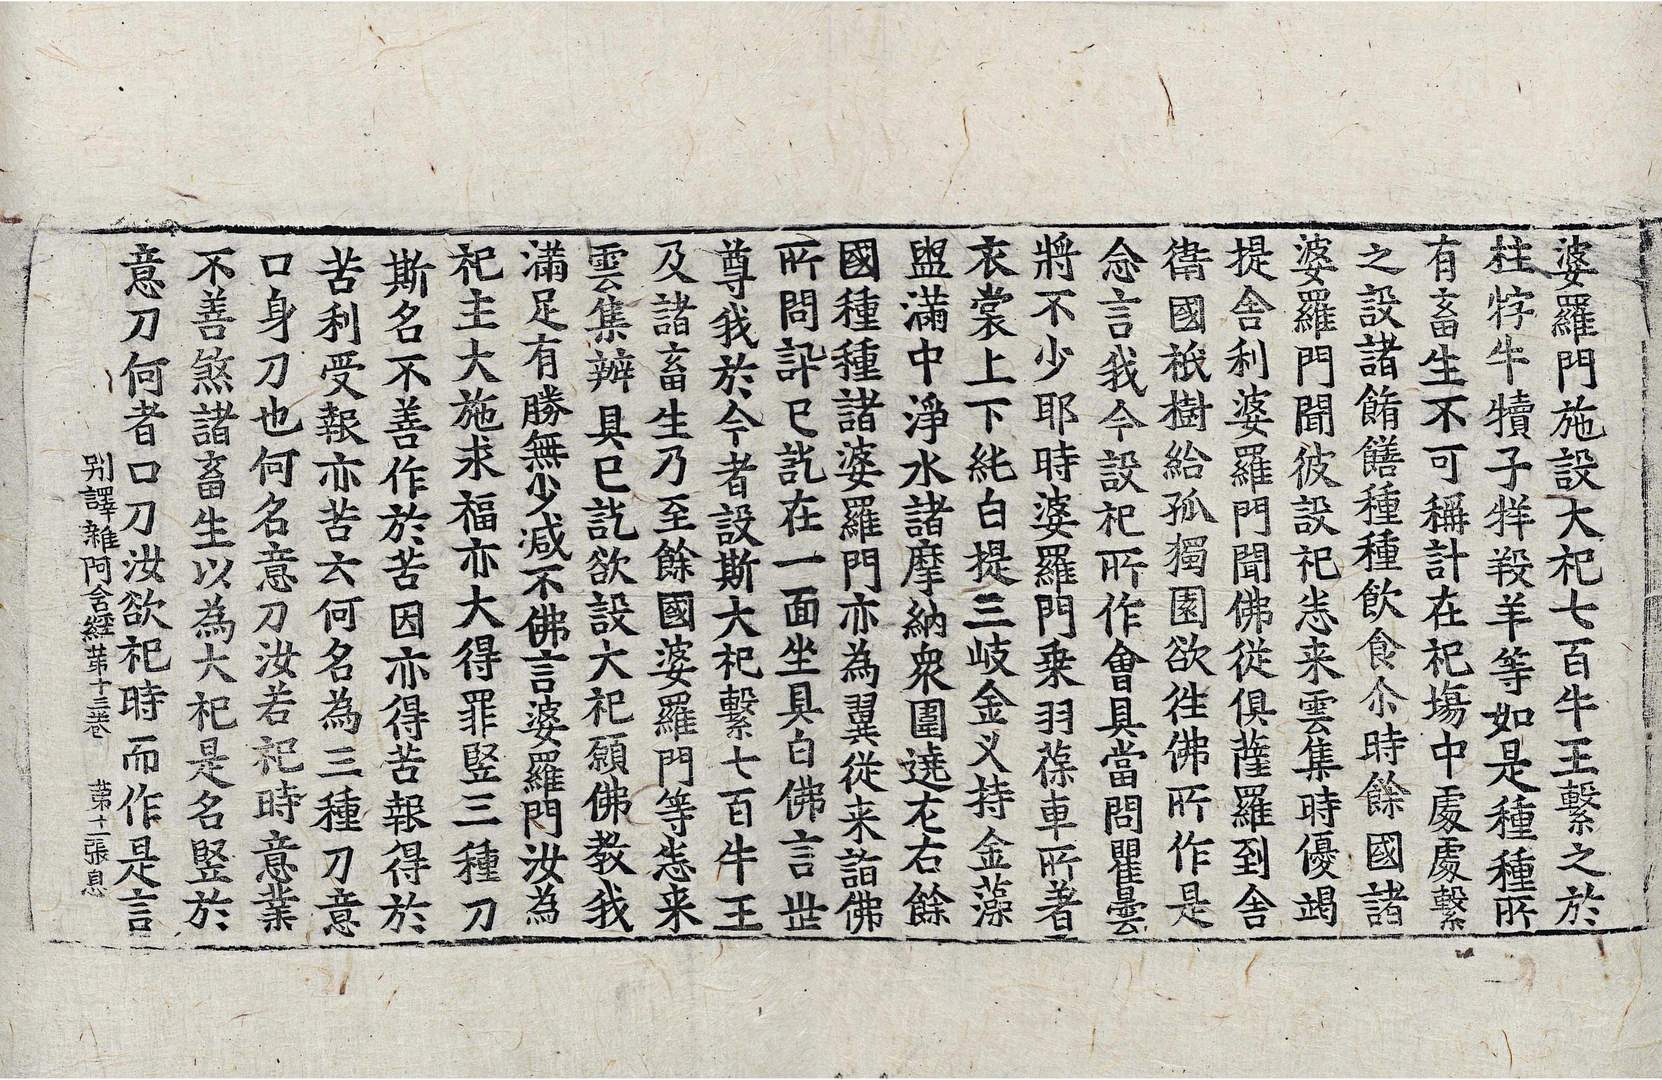 婆羅門施設大祀七百牛王繫之於
柱牸牛犢子牂羖羊等如是種種所
有畜生不可稱計在祀場中處處繫
之設諸餚饍種種飲食尒時餘國諸
婆羅門聞彼設祀悉来雲集時優竭
提舍利婆羅門聞佛從俱薩羅到舍
衛國祇樹給孤獨園欲往佛所作是
念言我今設祀所作會具當問瞿曇
將不少耶時婆羅門乗羽葆車所著
衣裳上下純白提三岐金义持金藻
盥滿中淨水諸摩納衆圍遶左右餘
國種種諸婆羅門亦為翼從来詣佛
所問訊已訖在一面坐具白佛言世
尊我於今者設斯大祀繫七百牛王
及諸畜生乃至餘國婆羅門等悉来
雲集辨具已訖欲設大祀願佛教我
滿足有勝無少减不佛言婆羅門汝為
祀主大施求福亦大得罪竪三種刀
斯名不善作於苦因亦得苦報得於
苦利受報亦苦云何名為三種刀意
口身刀也何名意刀汝若祀時意業
不善煞諸畜生以為大祀是名竪於
意刀何者口刀汝欲祀時而作是言
别譯雜阿含經苐十三卷 苐十二張 息